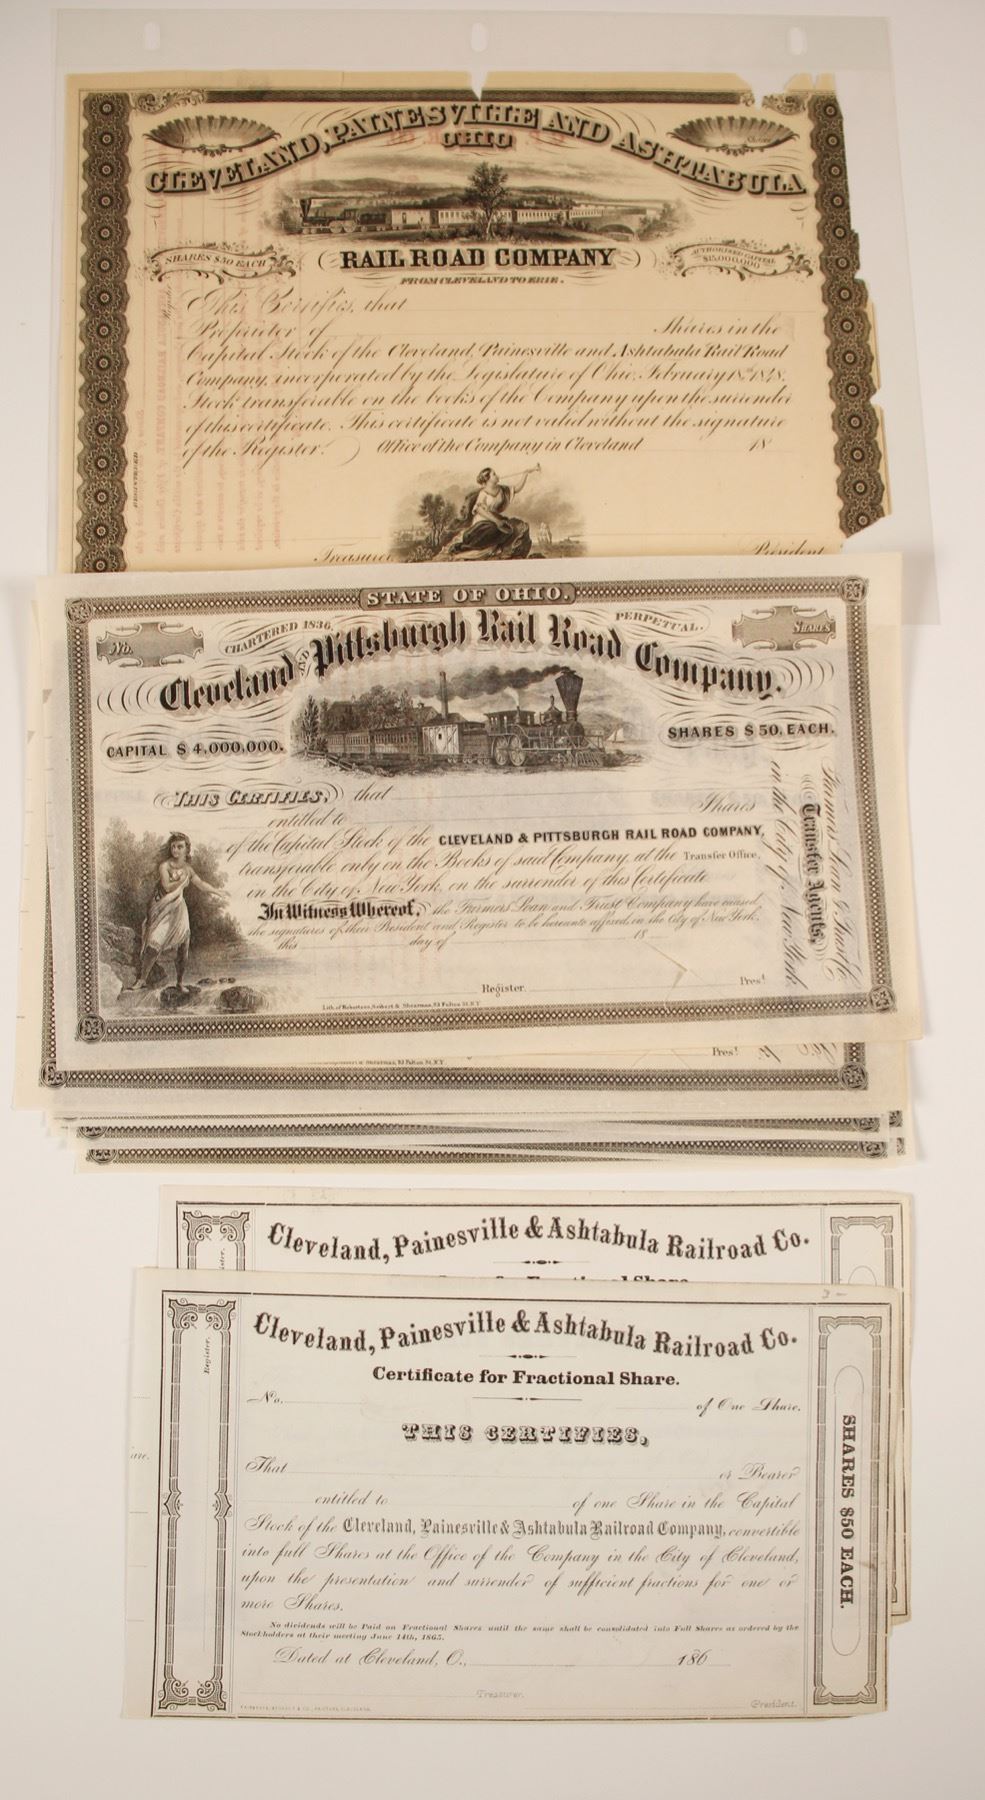 CLEVELAND, PAINESVILLE AND ASHTABULA
OHIO
SHARES $50 EACH
RAIL ROAD COMPANY
AUTHORISED CAPITAL
$15,000,000
FROM CLEVELAND TO ERIE.
This Certifies, that
Proprietor of Shares in the
Capital Stock of the Cleveland, Painesville and Ashtabula Rail Road
Company, incorporated by the Legislature of Ohio, February 18th 1848.
Stock transferable on the books of the Company upon the surrender
of this certificate. This certificate is not valid without the signature
of the Register. Office of the Company in Cleveland 18
REGISTERED
Treasurer President
STATE OF OHIO.
No. CHARTERED 1836, PERPETUAL. SHARES
Cleveland AND Pittsburgh Rail Road Company.
CAPITAL $4,000,000. SHARES $50, EACH.
THIS CERTIFIES, that
entitled to Shares
of the Capital Stock of the CLEVELAND & PITTSBURGH RAIL ROAD COMPANY,
transferable only on the Books of said Company, at the Transfer Office,
in the City of New York, on the surrender of this Certificate
In Witness Whereof, the Farmers Loan and Trust Company have caused
the signatures of their President and Register to be hereunto affixed, in the City of New York,
this day of 18
Register. Prest.
Lith of Robertson, Seibert & Shearman, 93 Fulton St. N.Y.
Farmers Loan & Trust Co.
Transfer Agents,
in the City of New York
Prest.
Shearman, 93 Fulton St. N.Y.
Cleveland, Painesville & Ashtabula Railroad Co.
Cleveland, Painesville & Ashtabula Railroad Co.
Certificate for Fractional Share.
Register.
No. of One Share.
THIS CERTIFIES,
That or Bearer
entitled to of one Share in the Capital
Stock of the Cleveland, Painesville & Ashtabula Railroad Company, convertible
into full Shares at the Office of the Company in the City of Cleveland,
upon the presentation and surrender of sufficient fractions for one or
more Shares.
No dividends will be Paid on Fractional Shares until the same shall be consolidated into Full Shares as ordered by the
Stockholders at their meeting June 14th, 1865.
Dated at Cleveland, O., 186
Treasurer.
President.
SHARES $50 EACH.